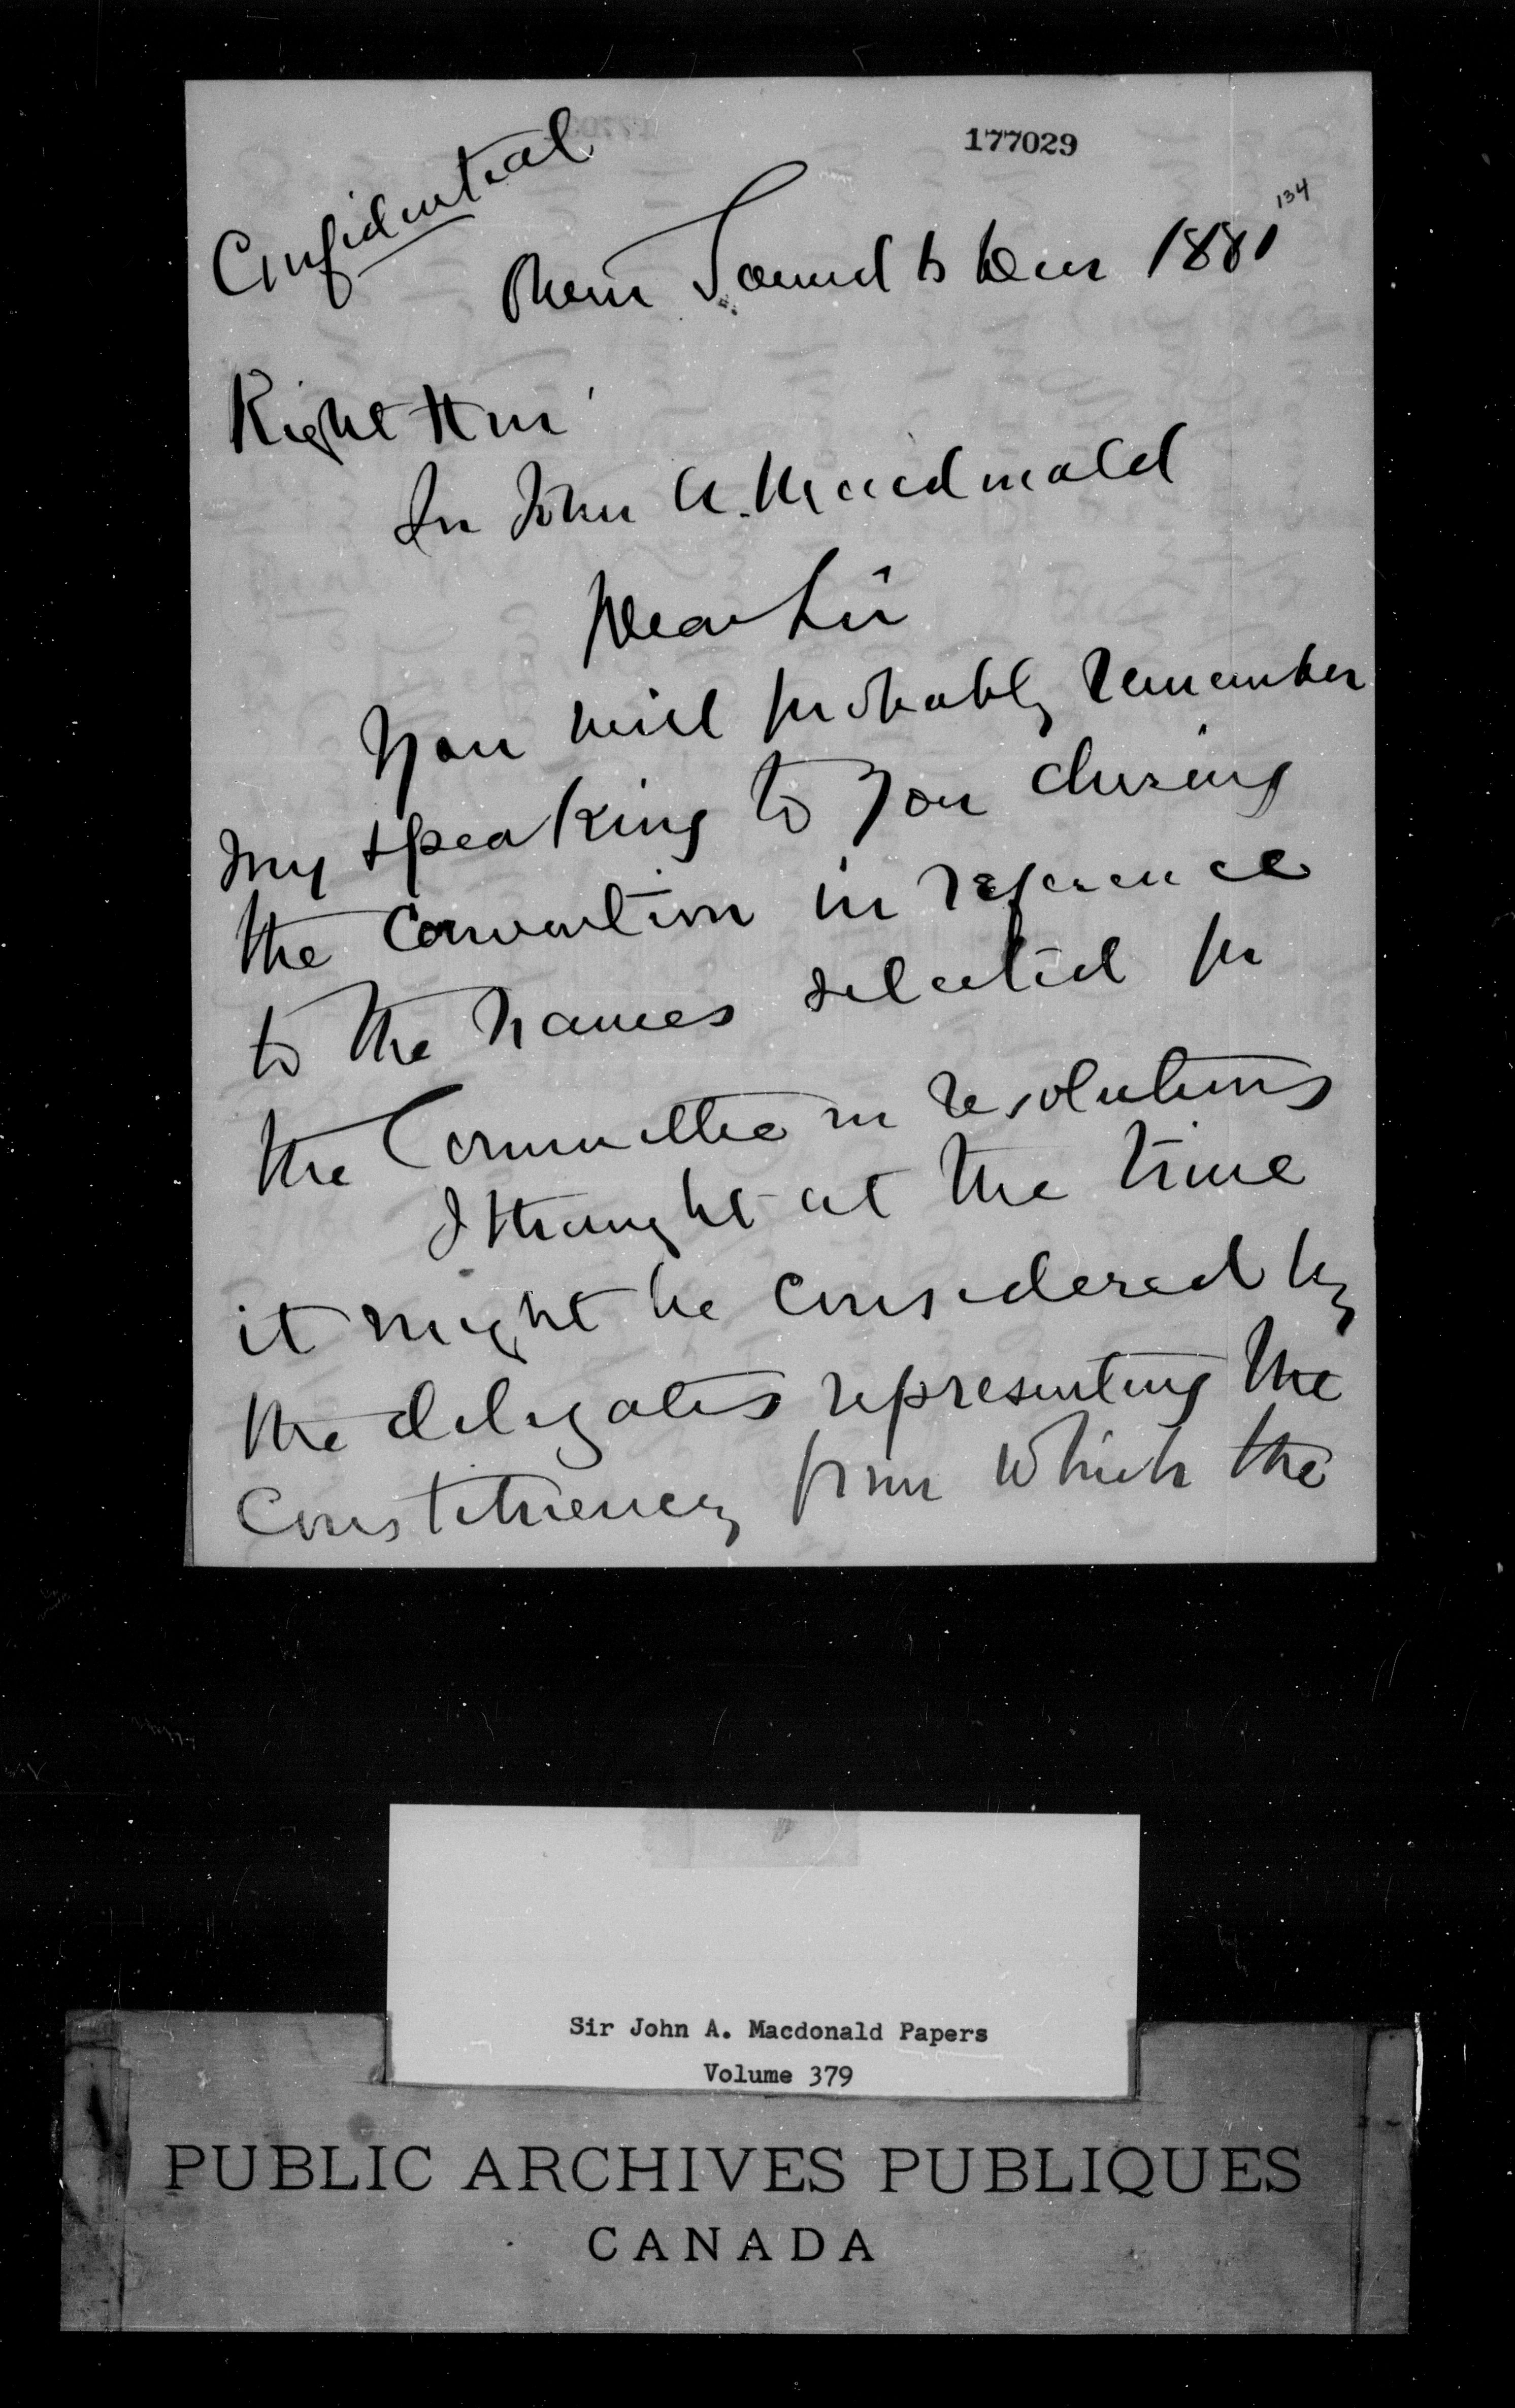 177029
134
Confidential
Owen Sound 6 Decr 1881
Right Hon'
Sir John A. Macdonald
Dear Sir
You will probably remember
my speaking to you during
the Convention in reference
to the names selected for
the Committee on resolutions
I thought at the time
it might be considered by
the delegates representing the
Constituency from which the
Sir John A. Macdonald Papers
Volume 379
PUBLIC ARCHIVES PUBLIQUES
CANADA